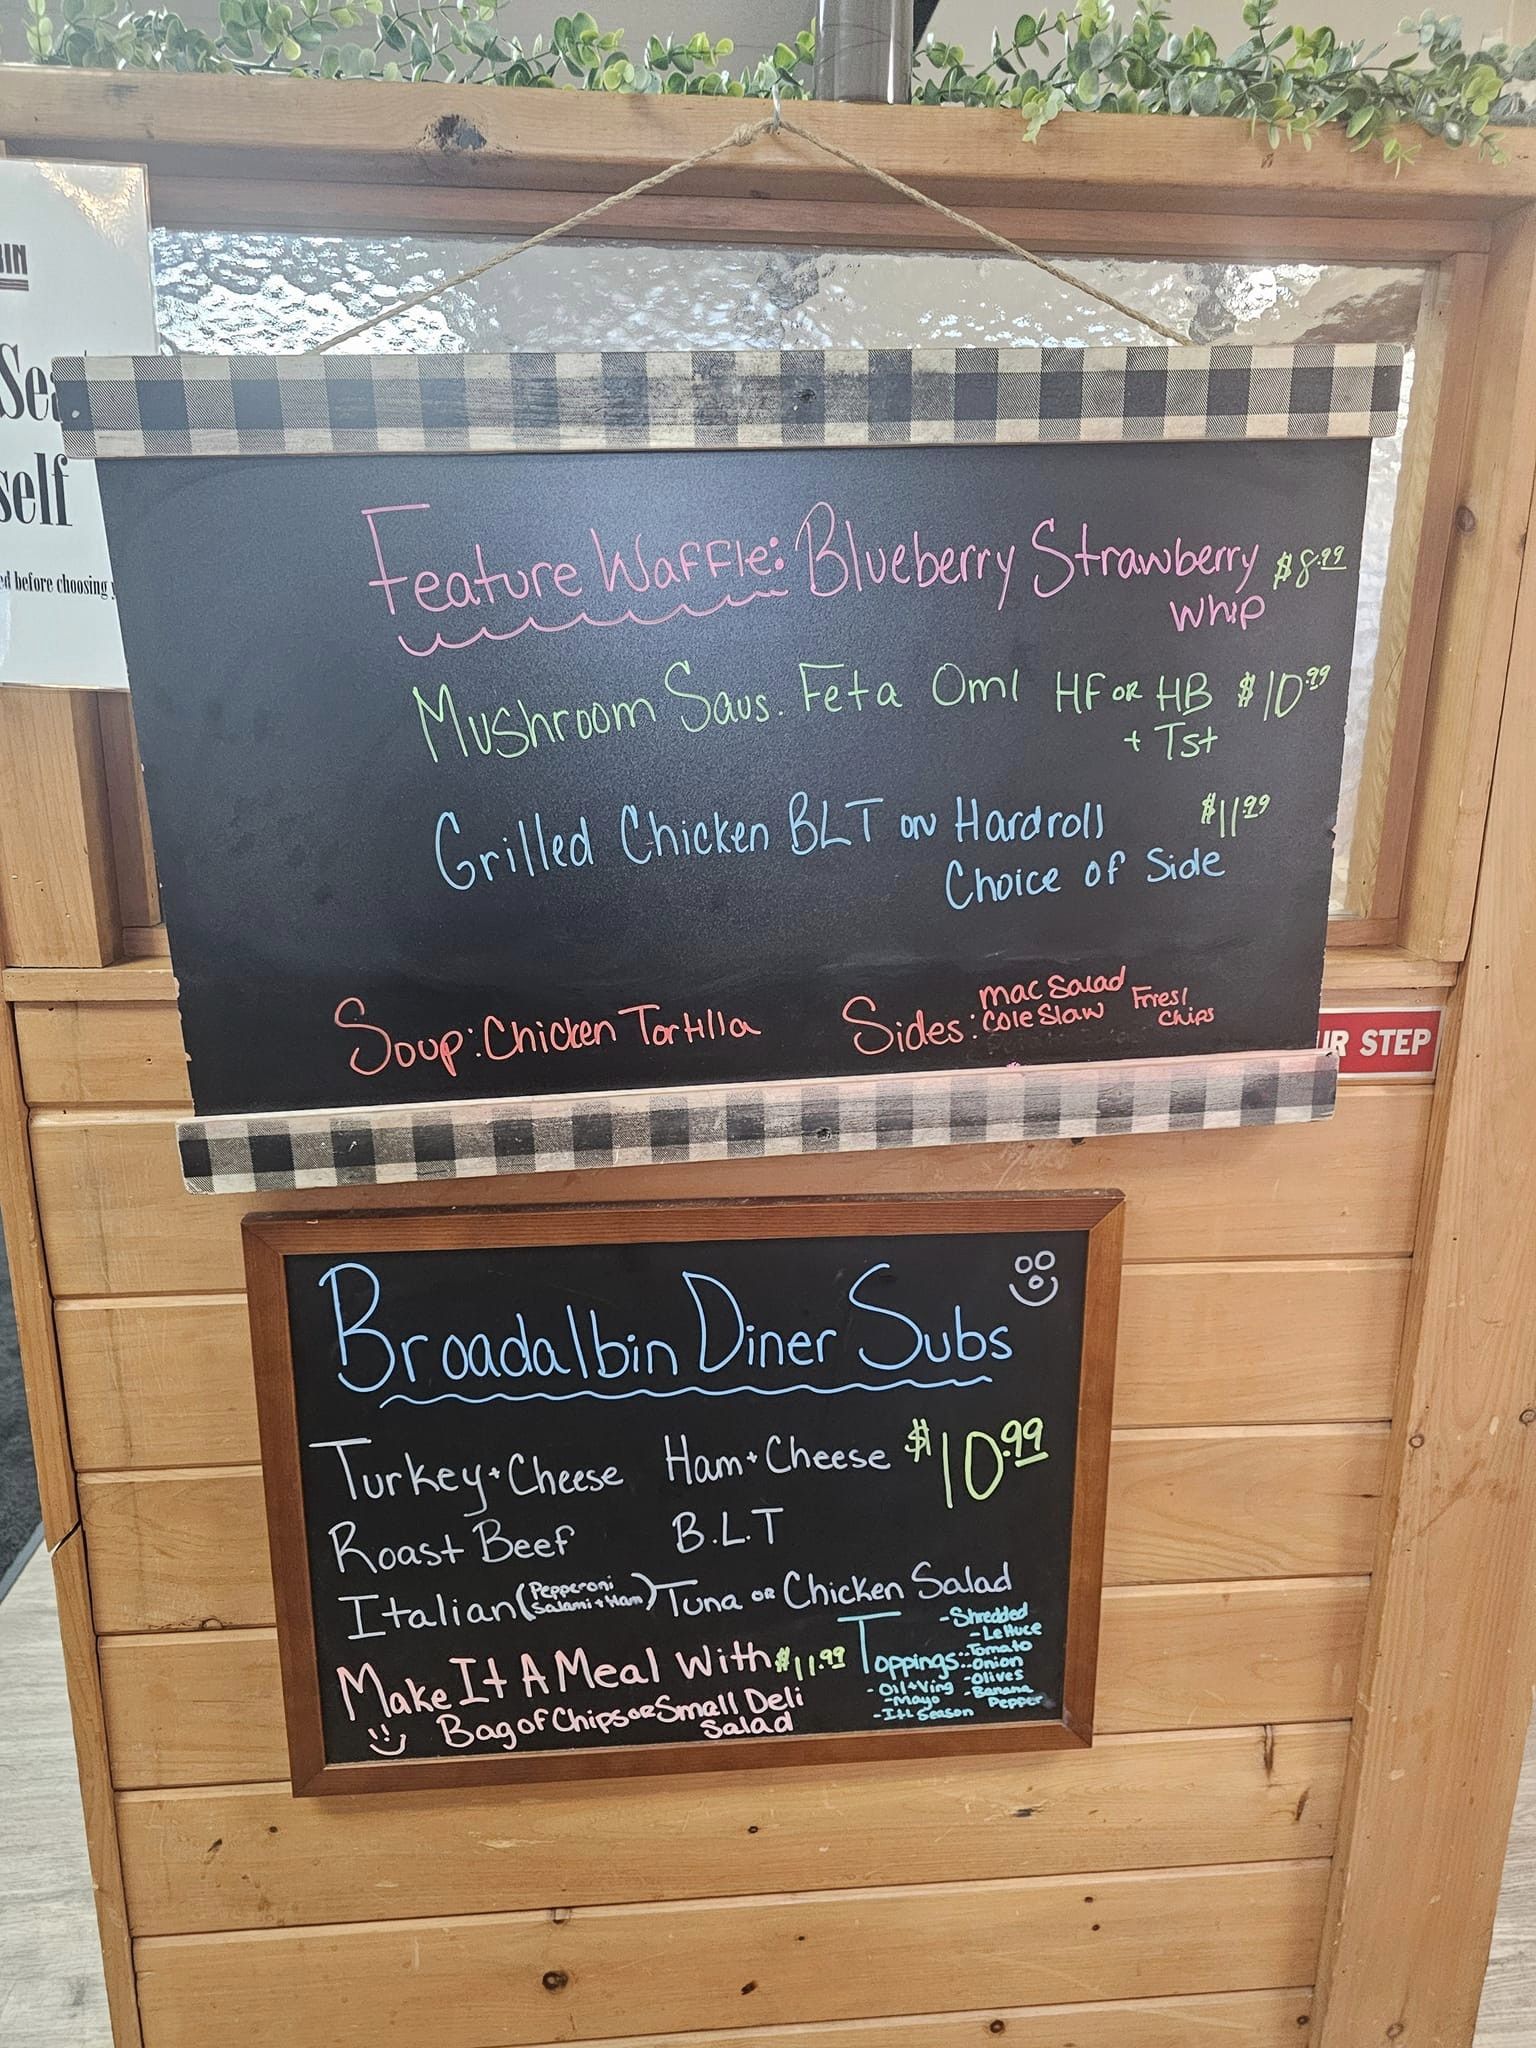 IN
Sea
self
ed before choosing y
Feature Waffle: Blueberry Strawberry $8.99
Whip
Mushroom Saus. Feta Oml HF OR HB $10.99
+ Tst
Grilled Chicken BLT on Hardroll $11.99
Choice of Side
Soup: Chicken Tortilla
Sides: Mac Salad Fries/
Cole Slaw Chips
UR STEP
Broadalbin Diner Subs
Turkey + Cheese Ham + Cheese $10.99
Roast Beef B.L.T
Italian (Pepperoni Salami + Ham) Tuna or Chicken Salad
Make It A Meal With $11.99
Bag of Chips or Small Deli
Salad
Toppings:
- Shredded
- Lettuce
- Tomato
- Onion
- Oil + Ving - Olives
- Mayo - Banana
- Itl Season Pepper